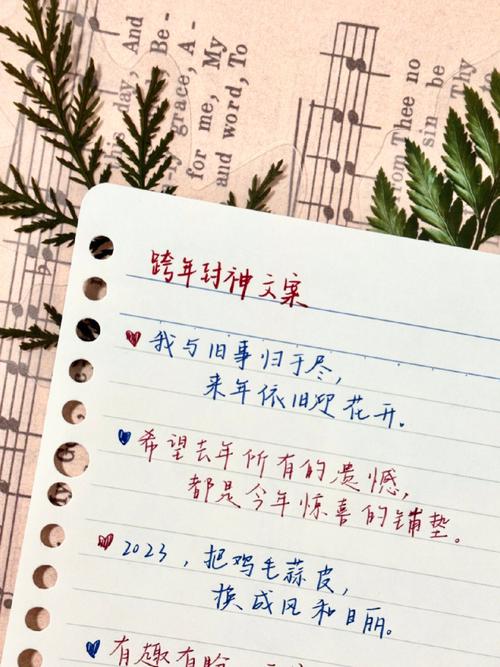 day, And
Be-
grace, A-
for me, My
and word, To
Thee no
sin be
Thy
To
跨年封神文案
我与旧事归于尽,
来年依旧迎花开。
希望去年所有的遗憾,
都是今年惊喜的铺垫。
2023,把鸡毛蒜皮,
换成风和日丽。
有趣有盼